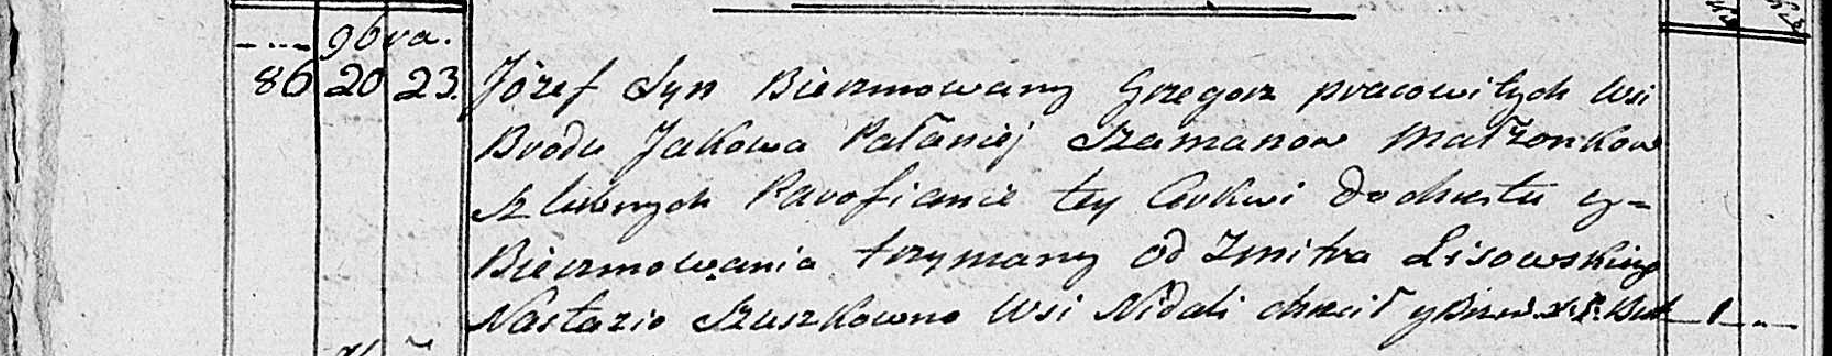 9bra.
86 20 23. Józef Syn Bierzmowany Grzegorz pracowitych Wsi
Brodu Jakowa Pałaniej Szamanow Małżonkow
Szlubnych Parofianie tey Cerkwi do chrztu y=
Bierzmowania trzymany od Zmitra Lisowskiego
Nastazio Szuszkowno Wsi Nidali chrcił y Bierz. X. P. 1